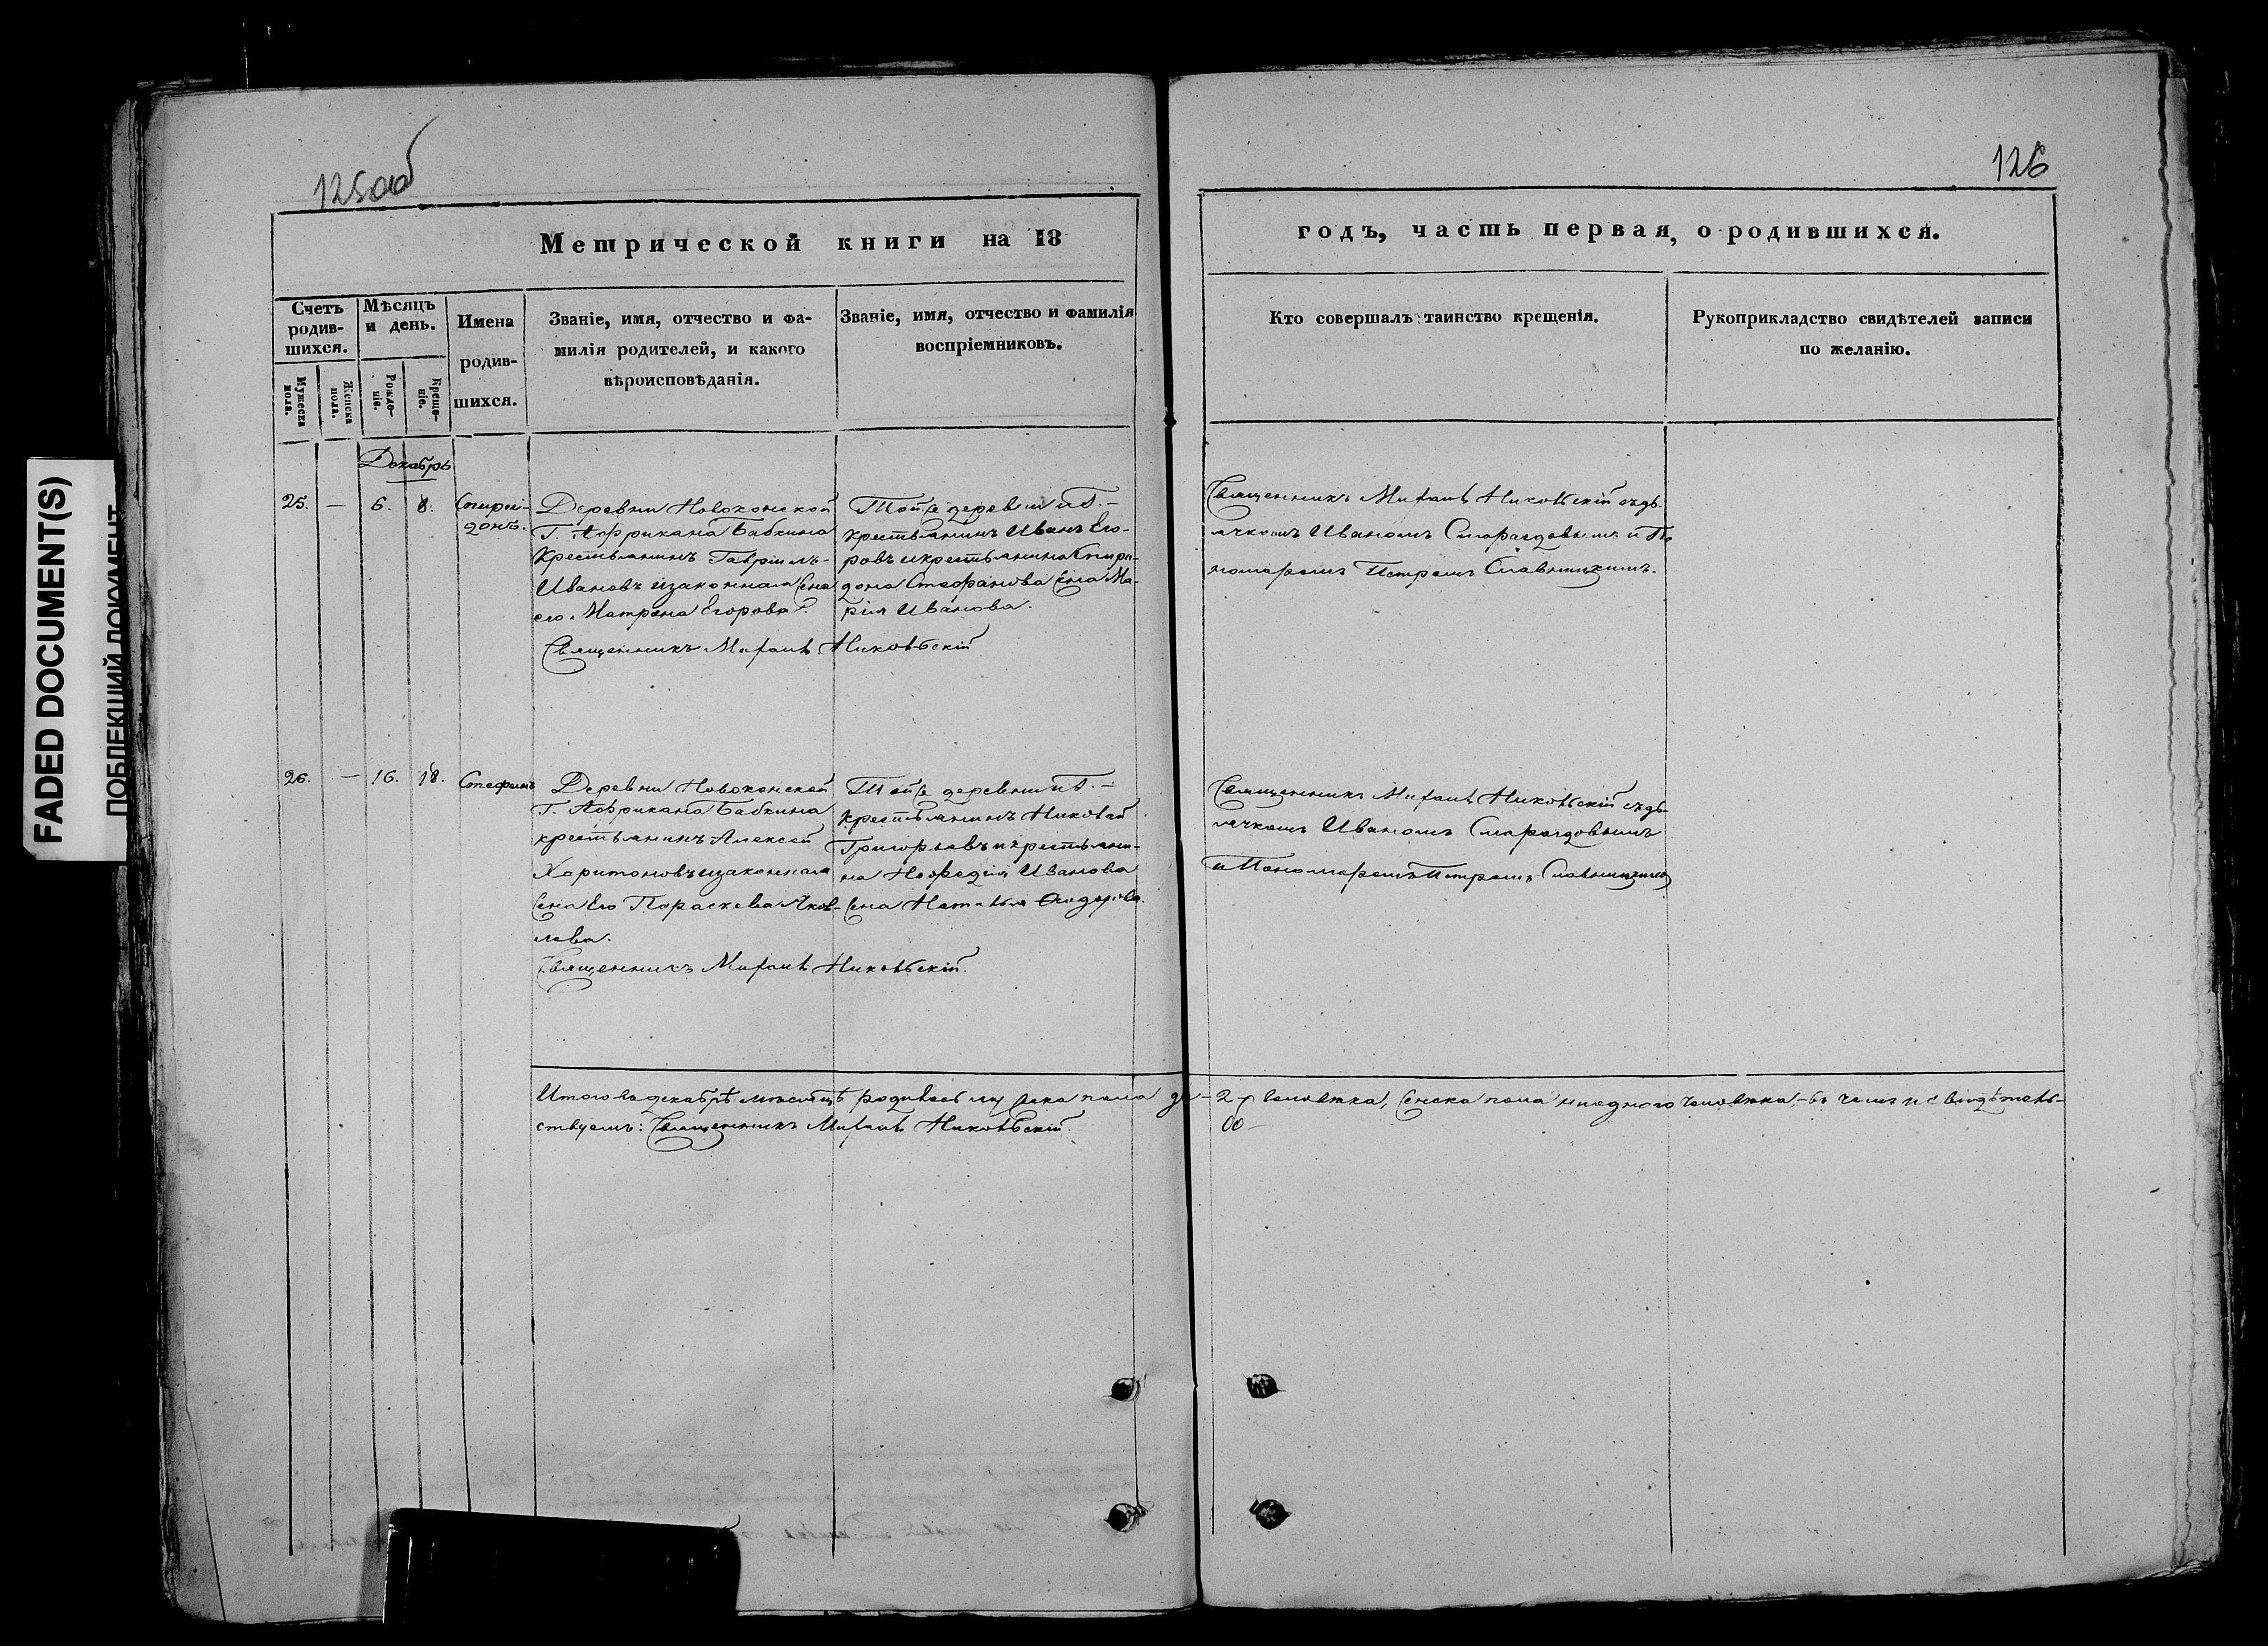 125об
126
Метрической книги на 18
годъ, часть первая, о родившихся.
Счетъ
родив-
шихся.
Мѣсяцъ
и день.
Имена
родив-
шихся.
Мужеска
пола.
Женска
пола.
Рожде-
ніе.
Креще-
ніе.
Званіе, имя, отчество и фа-
милія родителей, и какого
вѣроисповѣданія.
Званіе, имя, отчество и фамилія
воспріемниковъ.
Кто совершалъ таинство крещенія.
Рукоприкладство свидѣтелей записи
по желанію.
Декабрь
25. — 6. 8.
Спири-
донъ.
Деревни Новоконской
Г. Африкана Бабкина
Крестьянинъ Гавріилъ
Ивановъ изаконная жена
его Матрона Егорова.
Священникъ Михаилъ Никольскій
Той же деревни и Г. —
крестьянинъ Иванъ Его-
ровъ и крестьянина Спири-
дона Стефанова жена Ма-
рія Иванова.
Священникъ Михаилъ Никольскій съ дь-
ячкомъ Иваномъ Смарагдовымъ и По
номаремъ Петромъ Славницкимъ.
26. — 16. 18.
Стефанъ
Деревни Новоконской
Г. Африкана Бабкина
крестьянинъ Алексей
Харитоновъ изаконная
жена Его Параскева Яков-
лева.
Священникъ Михаилъ Никольскій.
Той же деревни и Г. —
крестьянинъ Николай
Григорьевъ и крестьяни-
на Нефедія Иванова
жена Наталья Ѳеодорова.
Священникъ Михаилъ Никольскій съ дь-
ячкомъ Иваномъ Смарагдовымъ
и Пономаремъ Петромъ Славницкимъ
Итого въ декабрѣ мѣсяцѣ родилось мужеска пола два- 2 человѣка, женска пола ниодного человѣка, — въ чемъ и свидѣтель-
ствуемъ: Священникъ Михаилъ Никольскій.
FADED DOCUMENT(S)
ПОБЛЕКШИЙ ДОКУМЕНТ